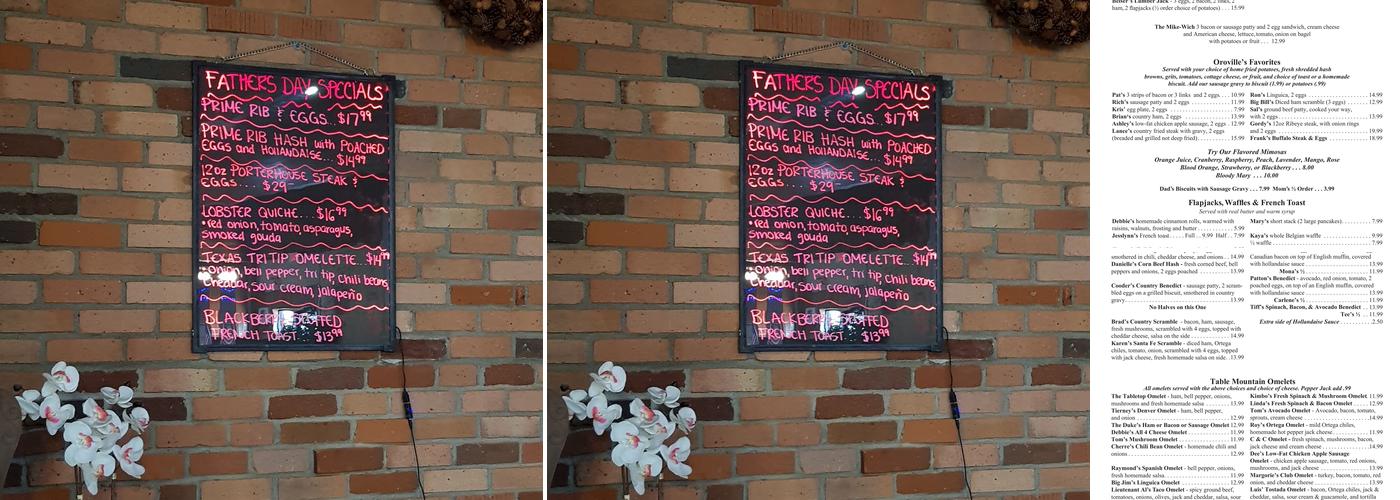 FATHERS DAY SPECIALS
PRIME RIB & EGGS... $17.99
PRIME RIB HASH with POACHED
EGGS and HOLLANDAISE... $14.99
12oz PORTERHOUSE STEAK &
EGGS.... $29-
LOBSTER QUICHE... $16.99
•red onion, tomato, asparagus,
smoked gouda
TEXAS TRI TIP OMELETTE.. $14.99
•onion, bell pepper, tri tip, chili beans,
cheddar, sour cream, jalapeño
BLACKBERRY
FRENCH TOAST.. $13.99
FATHERS DAY SPECIALS
PRIME RIB & EGGS... $17.99
PRIME RIB HASH with POACHED
EGGS and HOLLANDAISE... $14.99
12oz PORTERHOUSE STEAK &
EGGS.... $29-
LOBSTER QUICHE... $16.99
•red onion, tomato, asparagus,
smoked gouda
TEXAS TRI TIP OMELETTE.. $14.99
•onion, bell pepper, tri tip, chili beans,
cheddar, sour cream, jalapeño
BLACKBERRY
FRENCH TOAST.. $13.99
ham, 2 flapjacks (½ order choice of potatoes) . . . 15.99
The Mike-Wich 3 bacon or sausage patty and 2 egg sandwich, cream cheese
and American cheese, lettuce, tomato, onion on bagel
with potatoes or fruit . . . 12.99
Oroville's Favorites
Served with your choice of home fried potatoes, fresh shredded hash
browns, grits, tomatoes, cottage cheese, or fruit, and choice of toast or a homemade
biscuit. Add our sausage gravy to biscuit (1.99) or potatoes (.99)
Pat's 3 strips of bacon or 3 links and 2 eggs . . . 10.99
Rich's sausage patty and 2 eggs . . . 11.99
Kris' egg plate, 2 eggs . . . 7.99
Brian's country ham, 2 eggs . . . 13.99
Ashley's low-fat chicken apple sausage, 2 eggs . . . 12.99
Lance's country fried steak with gravy, 2 eggs
(breaded and grilled not deep fried) . . . 15.99
Ron's Linguica, 2 eggs . . . 14.99
Big Bill's Diced ham scramble (3 eggs) . . . 12.99
Sal's ground beef patty, cooked your way,
with 2 eggs . . . 13.99
Gordy's 12oz Ribeye steak, with onion rings
and 2 eggs . . . 19.99
Frank's Buffalo Steak & Eggs . . . 18.99
Try Our Flavored Mimosas
Orange Juice, Cranberry, Raspberry, Peach, Lavender, Mango, Rose
Blood Orange, Strawberry, or Blackberry . . . 8.00
Bloody Mary . . . 10.00
Dad's Biscuits with Sausage Gravy . . . 7.99 Mom's ½ Order . . . 3.99
Flapjacks, Waffles & French Toast
Served with real butter and warm syrup
Debbie's homemade cinnamon rolls, warmed with
raisins, walnuts, frosting and butter . . . 5.99
Josslynn's French toast . . . Full . . 9.99 Half . . 7.99
Mary's short stack (2 large pancakes) . . . 7.99
Kaya's whole Belgian waffle . . . 9.99
½ waffle . . . 7.99
smothered in chili, cheddar cheese, and onions . . . 14.99
Danielle's Corn Beef Hash - fresh corned beef, bell
peppers and onions, 2 eggs poached . . . 13.99
Cooder's Country Benedict - sausage patty, 2 scram-
bled eggs on a grilled biscuit, smothered in country
gravy . . . 13.99
No Halves on this One
Brad's Country Scramble - bacon, ham, sausage,
fresh mushrooms, scrambled with 4 eggs, topped with
cheddar cheese, salsa on the side . . . 14.99
Karen's Santa Fe Scramble - diced ham, Ortega
chiles, tomato, onion, scrambled with 4 eggs, topped
with jack cheese, fresh homemade salsa on side . . 13.99
Canadian bacon on top of English muffin, covered
with hollandaise sauce . . . 13.99
Mona's ½ . . . 11.99
Patton's Benedict - avocado, red onion, tomato, 2
poached eggs, on top of an English muffin, covered
with hollandaise sauce . . . 13.99
Carlene's ½ . . . 11.99
Tiff's Spinach, Bacon, & Avocado Benedict . . . 13.99
Tee's ½ . . . 11.99
Extra side of Hollandaise Sauce . . . 2.50
Table Mountain Omelets
All omelets served with the above choices and choice of cheese. Pepper Jack add .99
The Tabletop Omelet - ham, bell pepper, onions,
mushrooms and fresh homemade salsa . . . 13.99
Tierney's Denver Omelet - ham, bell pepper,
and onion . . . 12.99
The Duke's Ham or Bacon or Sausage Omelet 12.99
Debbie's All 4 Cheese Omelet . . . 11.99
Tom's Mushroom Omelet . . . 11.99
Cherre's Chili Bean Omelet - homemade chili and
onions . . . 12.99
Raymond's Spanish Omelet - bell pepper, onions,
fresh homemade salsa . . . 11.99
Big Jim's Linguica Omelet . . . 12.99
Lieutenant Al's Taco Omelet - spicy ground beef,
tomatoes, onions, olives, jack and cheddar, salsa, sour
Kimbo's Fresh Spinach & Mushroom Omelet 11.99
Linda's Fresh Spinach & Bacon Omelet . . . 12.99
Tom's Avocado Omelet - Avocado, bacon, tomato,
sprouts, cream cheese . . . 14.99
Roy's Ortega Omelet - mild Ortega chiles,
homemade hot pepper jack cheese . . . 11.99
C & C Omelet - fresh spinach, mushrooms, bacon,
jack cheese and cream cheese . . . 14.99
Dee's Low-Fat Chicken Apple Sausage
Omelet - chicken apple sausage, tomato, red onions,
mushrooms, and jack cheese . . . 13.99
Marjorie's Club Omelet - turkey, bacon, tomato, red
onion, and jack cheese . . . 13.99
Luis' Tostada Omelet - bacon, Ortega chiles, jack &
cheddar, salsa, sour cream & guacamole, and tortilla